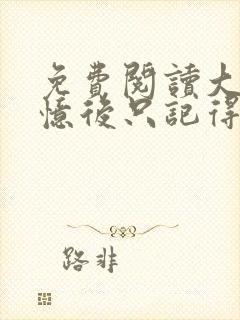 免費閱讀大
憶後只記得
路非